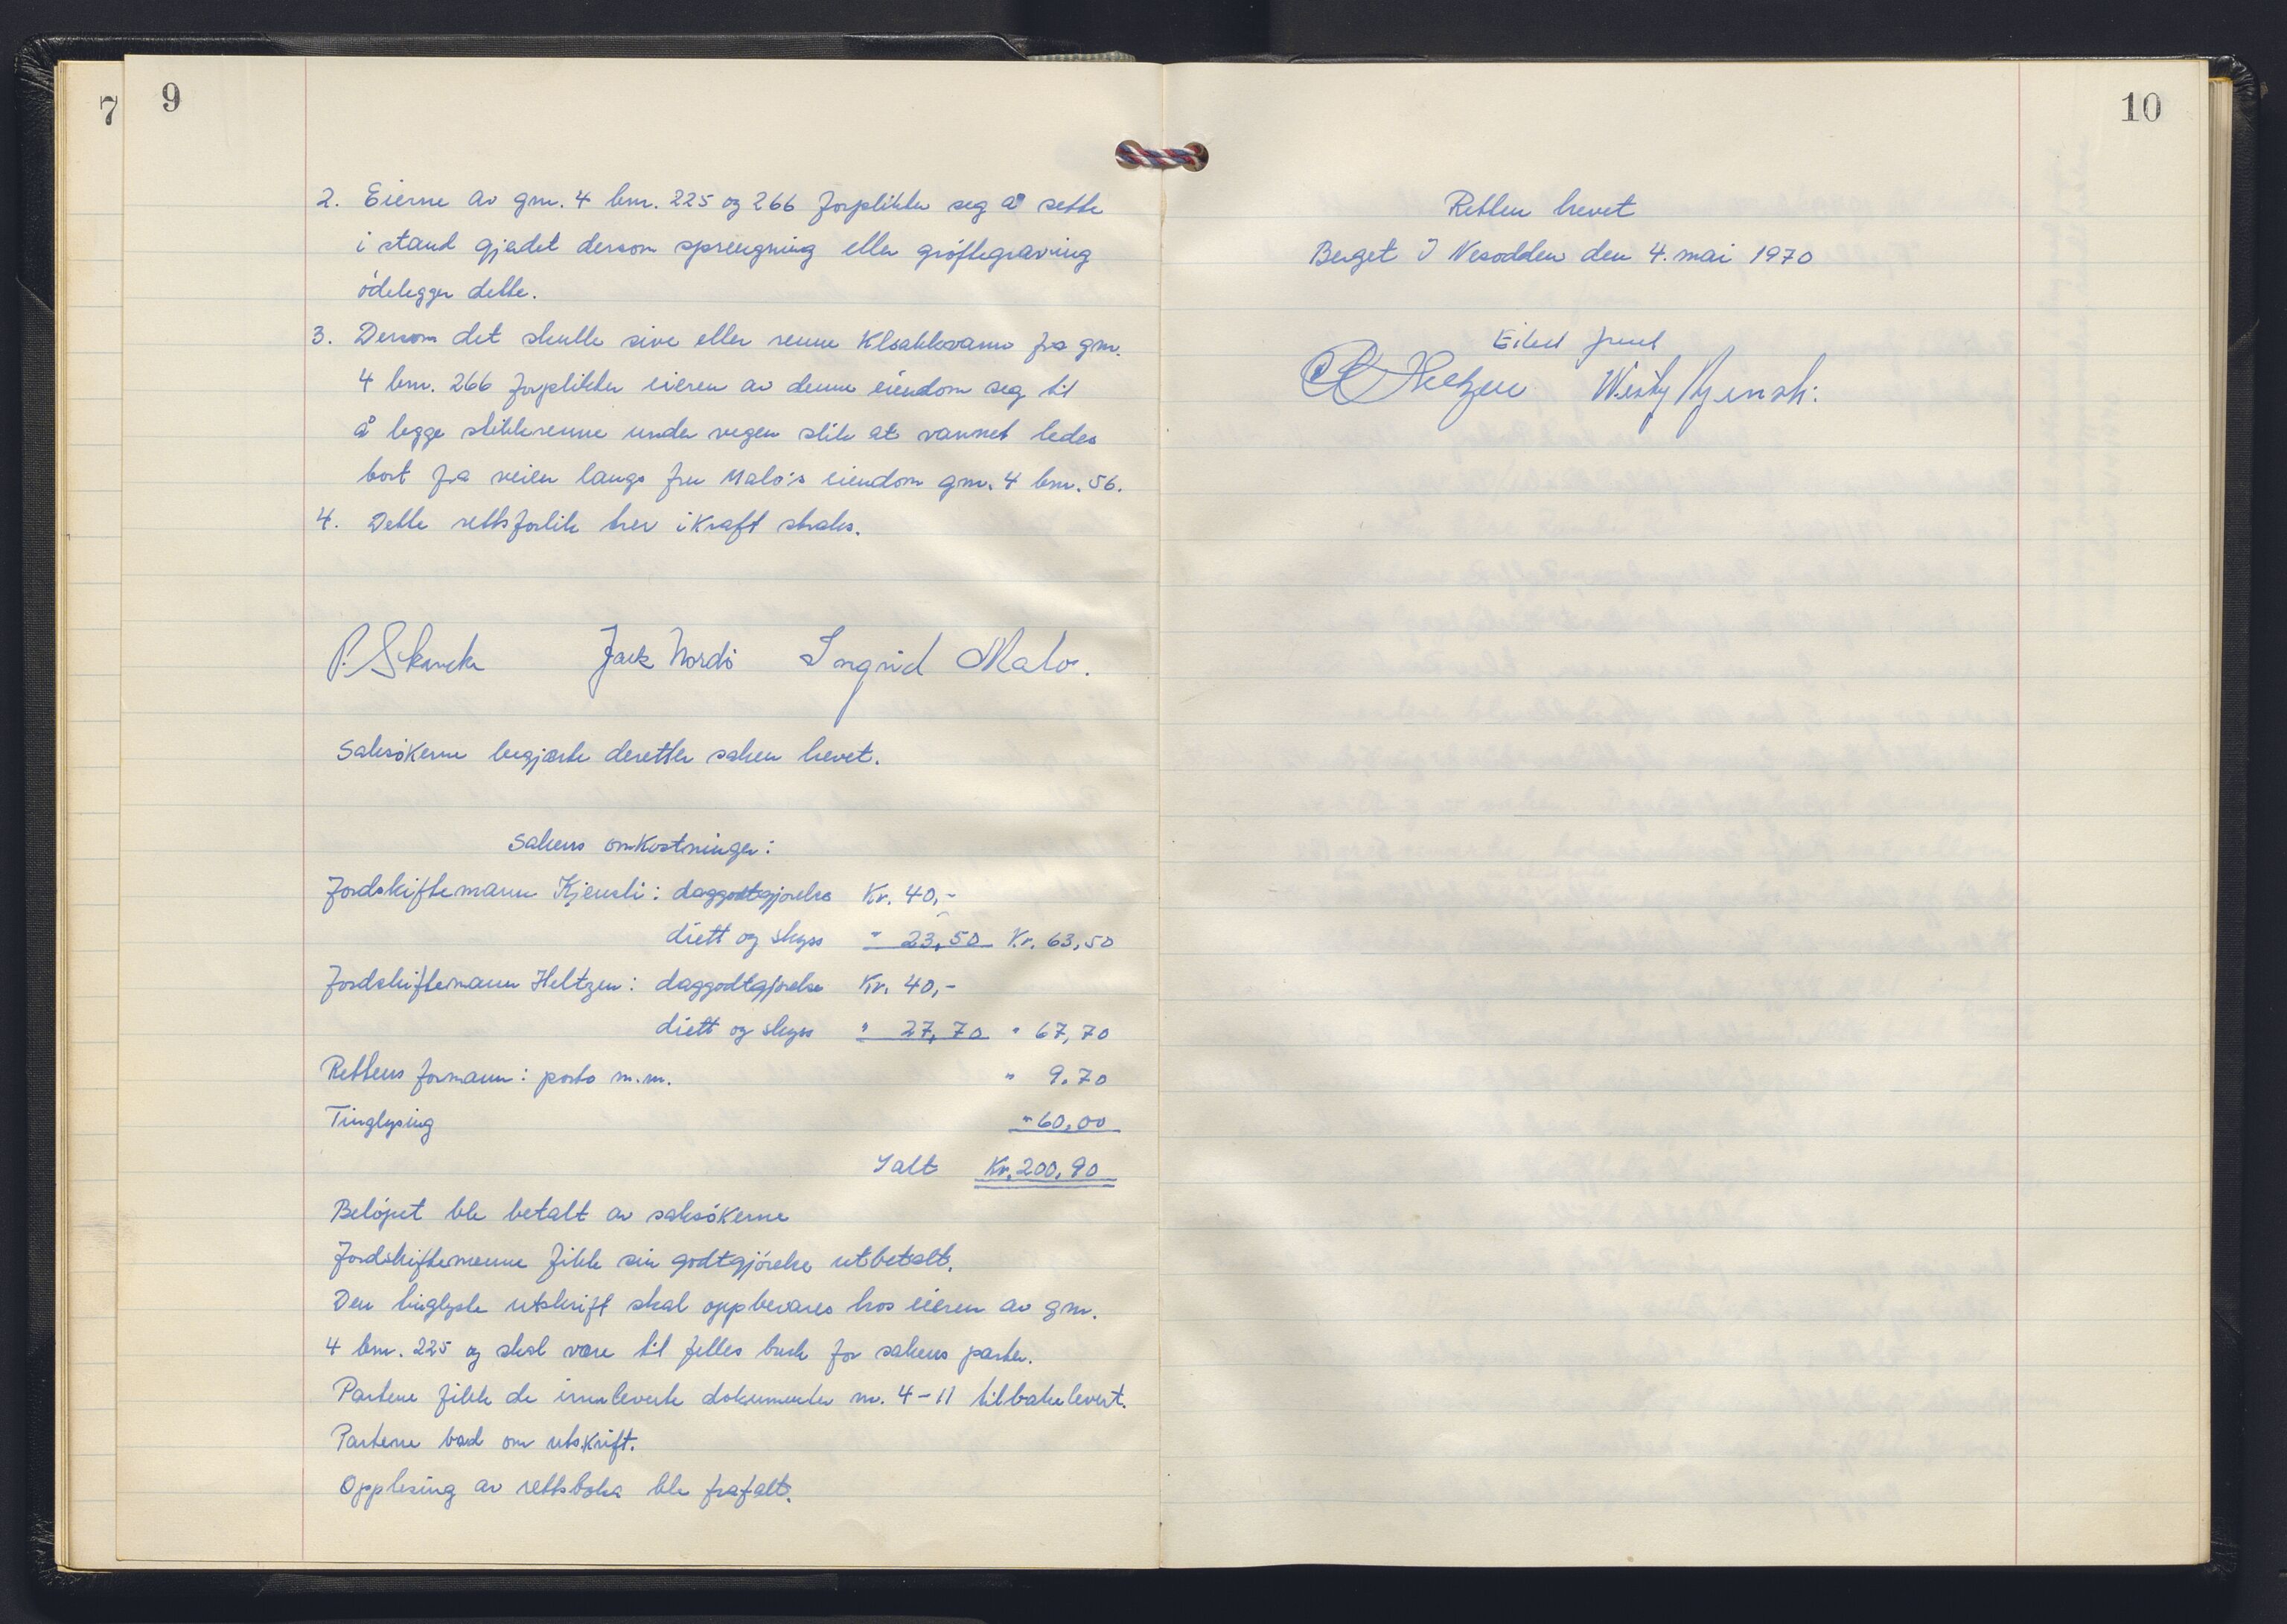 7
9
2. Eierne av gnr. 4 bnr. 225 og 266 forplikter seg å sette
i stand gjerdet dersom sprengning eller grøftegraving
ødelegger dette.
3. Dersom det skulle sive eller renne kloakkvann fra gnr.
4 bnr. 266 forplikter eieren av denne eiendom seg til
å legge stikkrenne under vegen slik at vannet ledes
bort fra veien langs fru Malo's eiendom gnr. 4 bnr. 56.
4. Dette rettsforlik trer i kraft straks.
P. Skancke Jack Nordö Ingrid Malo.
Saksøkerne begjærte deretter saken hevet.
Sakens omkostninger:
Jordskiftemann Kjensli: daggodtgjørelse Kr. 40,-
diett og skyss " 23,50 Kr. 63,50
Jordskiftemann Heltzen: daggodtgjørelse Kr. 40,-
diett og skyss " 27,70 " 67,70
Rettens formann: porto m.m. " 9.70
Tinglysing " 60,00
Ialt Kr. 200,90
Beløpet ble betalt av saksøkerne
Jordskiftemenne fikk sin godtgjørelse utbetalt.
Den tinglyste utskrift skal oppbevares hos eieren av gnr.
4 bnr. 225 og skal være til felles bruk for sakens parter.
Partene fikk de innleverte dokumenter nr. 4-11 tilbakelevert.
Partene bad om utskrift.
Opplesing av rettsboka ble frafalt.
10
Retten hevet
Berget I Nesodden den 4. mai 1970
Heltzen Kjensli.